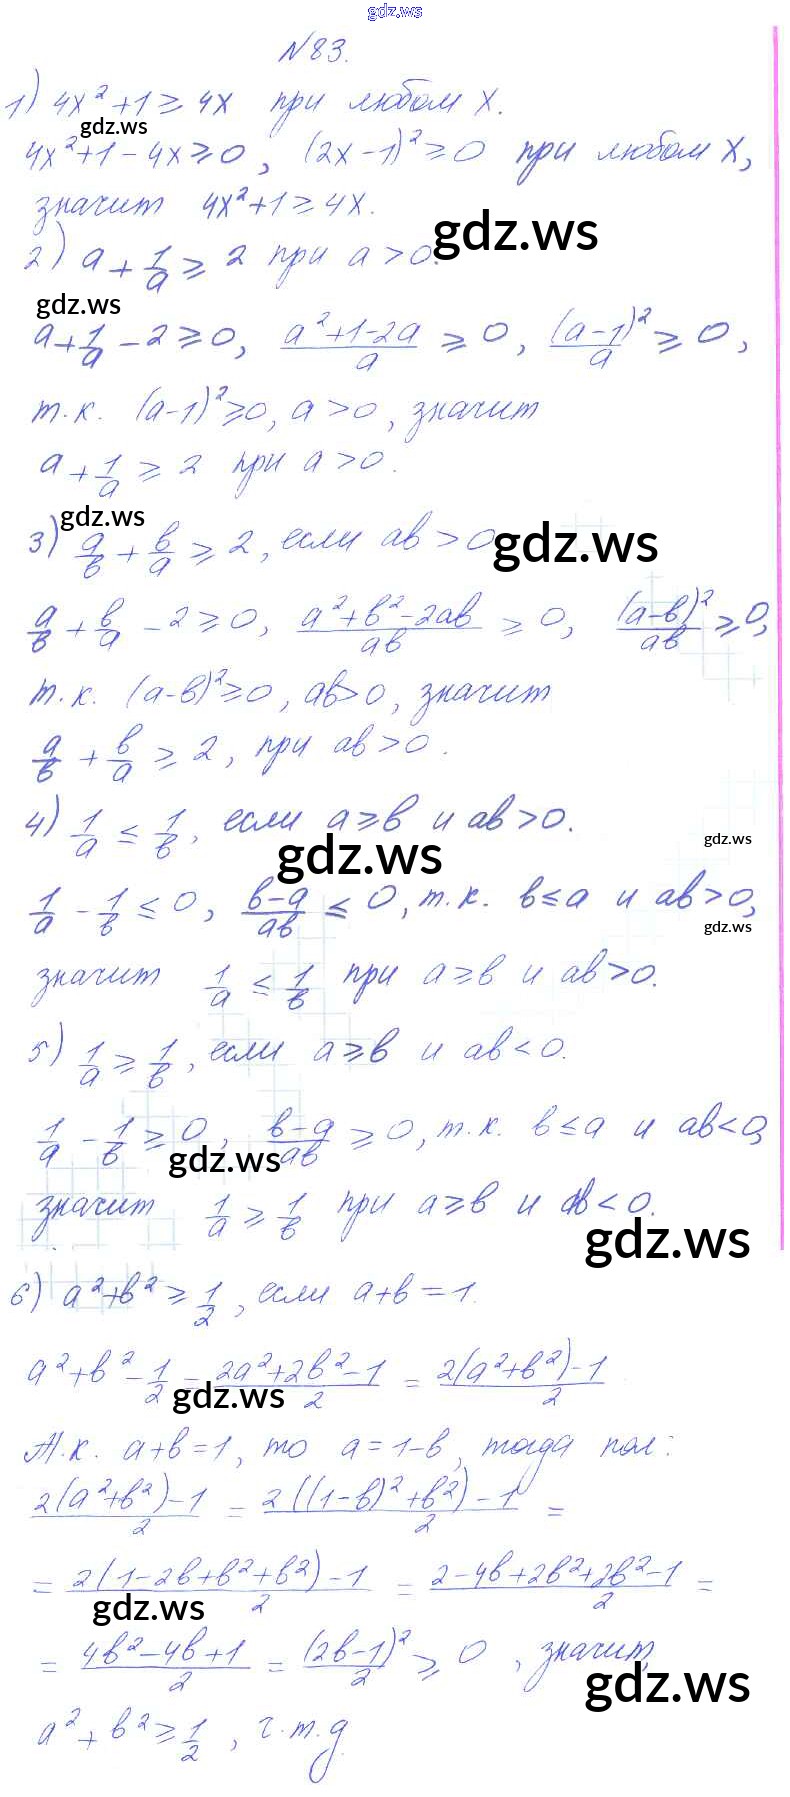 gdz.ws
№83.
1) 4x² + 1 ≥ 4x при любом x.
gdz.ws
4x² + 1 - 4x ≥ 0, (2x - 1)² ≥ 0 при любом x,
значит 4x² + 1 ≥ 4x.
gdz.ws
2) a + 1/a ≥ 2 при a > 0.
gdz.ws
a + 1/a - 2 ≥ 0, (a² + 1 - 2a)/a ≥ 0, (a - 1)²/a ≥ 0,
т.к. (a - 1)² ≥ 0, a > 0, значит
a + 1/a ≥ 2 при a > 0.
gdz.ws
3) a/в + в/a ≥ 2, если aв > 0
gdz.ws
a/в + в/a - 2 ≥ 0, (a² + в² - 2aв)/aв ≥ 0, (a - в)²/aв ≥ 0,
т.к. (a - в)² ≥ 0, aв > 0, значит
a/в + в/a ≥ 2, при aв > 0.
4) 1/a ≤ 1/в, если a ≥ в и aв > 0.
gdz.ws
gdz.ws
1/a - 1/в ≤ 0, (в - a)/aв ≤ 0, т.к. в ≤ a и aв > 0,
gdz.ws
значит 1/a ≤ 1/в при a ≥ в и aв > 0.
5) 1/a ≥ 1/в, если a ≥ в и aв < 0.
1/a - 1/в ≥ 0, (в - a)/aв ≥ 0, т.к. в ≤ a и aв < 0,
gdz.ws
значит 1/a ≥ 1/в при a ≥ в и aв < 0.
gdz.ws
6) a² + в² ≥ 1/2, если a + в = 1.
a² + в² - 1/2 = (2a² + 2в² - 1)/2 = (2(a² + в²) - 1)/2
gdz.ws
Т.к. a + в = 1, то a = 1 - в, тогда пол:
(2(a² + в²) - 1)/2 = (2((1 - в)² + в²) - 1)/2 =
= (2(1 - 2в + в² + в²) - 1)/2 = (2 - 4в + 2в² + 2в² - 1)/2 =
gdz.ws
= (4в² - 4в + 1)/2 = (2в - 1)²/2 ≥ 0, значит,
gdz.ws
a² + в² ≥ 1/2, ч.т.д.